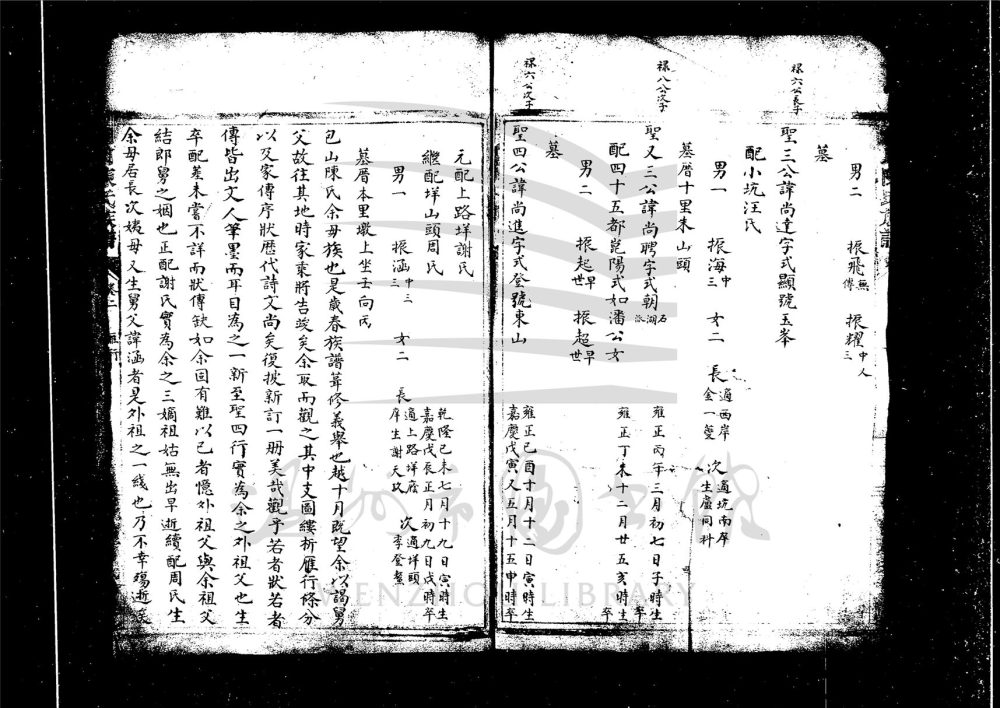 男二 振飛無傳 振耀中三人
墓
祿六公長子
聖三公諱尚達字式顯號玉峯
配小坑汪氏
男一 振海中三 女二 長適西岸金一夔 次適坑南岸生盧同科
墓厝十里来山頭
祿八公次子
聖又三公諱尚聘字式朝 雍正丙午三月初七日子時生 卒
配四十五都崑陽式如潘公女 雍正丁未十二月廿五亥時生 卒
男二 振起早世 振超早世
墓
祿六公次子
聖四公諱尚進字式登號東山 雍正己酉十月十二日寅時生 嘉慶戊寅又五月十五申時卒
元配上路垟謝氏
繼配垟山頭周氏 乾隆己未七月十九日寅時生 嘉慶戊辰正月初九日戌時卒
男一 振涵中三三 女二 長適上路垟詹庠生謝天玖 次適垟頭李登鰲
墓厝本里墩上坐壬向丙
包山陳氏余母族也是歲春族譜葺修義舉也越十月既望余以謁舅
父故往其地時家乘將告竣矣余取而觀之其中支圖縷析雁行條分
以及家傳序狀歷代詩文尚矣復披新訂一册美哉觀乎若者狀若者
傳皆出文人筆墨而耳目為之一新至聖四行實為余之外祖父也生
卒配差未嘗不詳而狀傳缺如余固有難以已者憶外祖父與余祖父
結郎舅之姻也正配謝氏實為余之三嫡祖姑無出早逝續配周氏生
余母居長次姨母又生舅父諱涵者是外祖之一綫也乃不幸殤逝矣
陳氏族譜 卷二 行